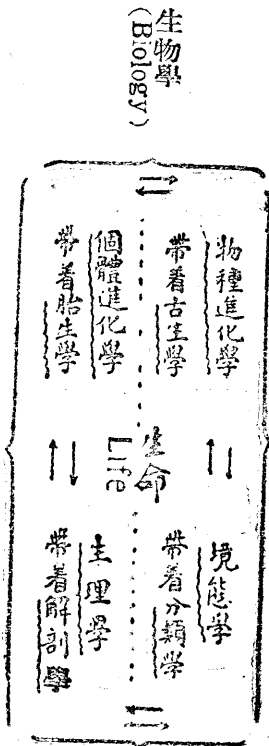 生物學
(Biology)
物種進化學
帶着古生學
個體進化學
帶着胎生學
生命
Life
境態学
帶着分類学
生理学
帶着解剖學